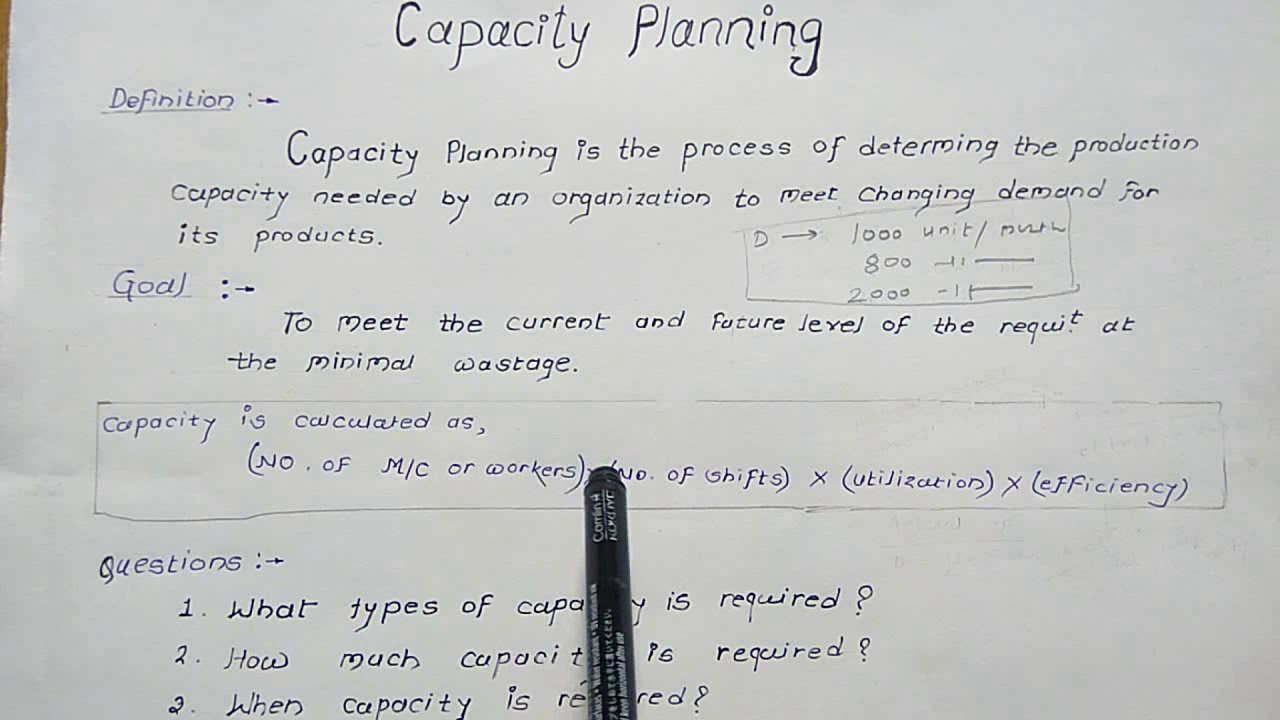 Capacity Planning
Definition :→
Capacity Planning is the process of determing the production
capacity needed by an organization to meet changing demand for
its products.
D → 1000 unit/
800 -11-
2000 -11-
Goal :→
To meet the current and future level of the requit at
the minimal wastage.
Capacity is calculated as,
(NO. OF M/C or workers) (NO. OF shifts) × (utilization) × (efficiency)
Camlin
Questions :→
1. What types of capa y is required?
2. How much capacit is required?
2. When capacity is re red?